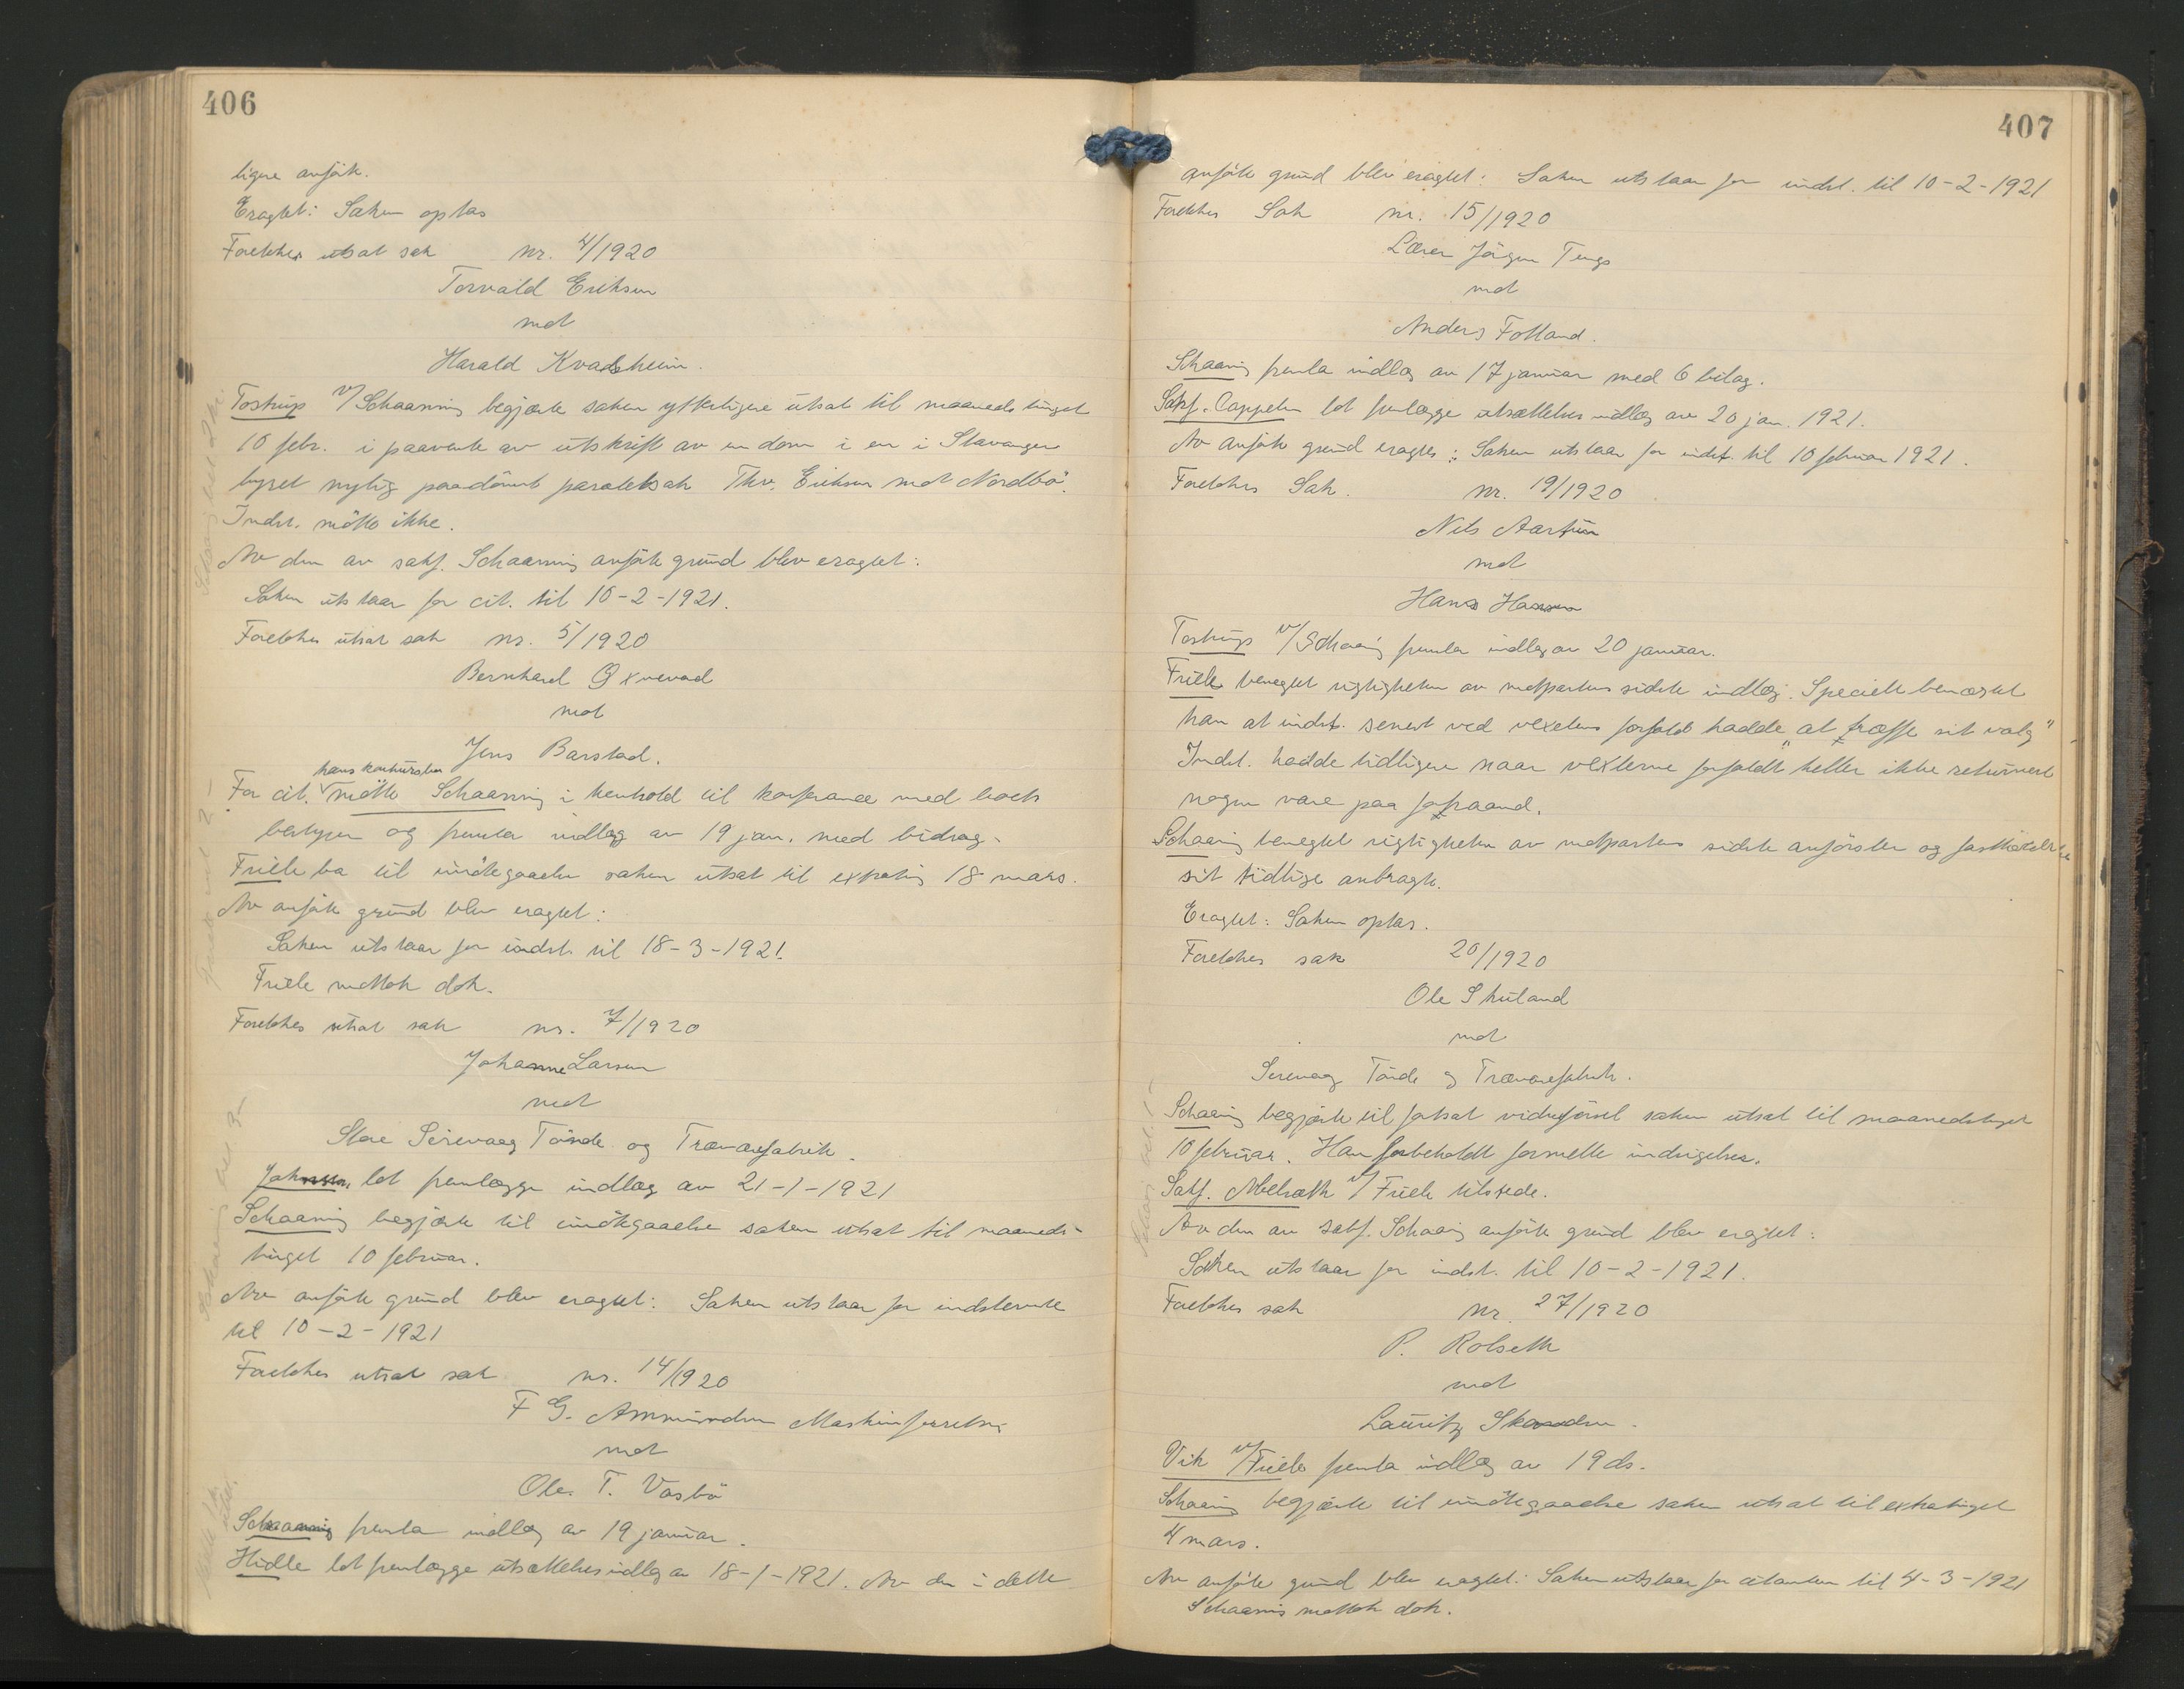 406
ligere anført.
Eragtet: Saken optas
Foretokes utsat sak nr. 4/1920
Torvald Eriksen
mot
Harald Kvadsheim.
Tostrup v/ Schaanning begjærte saken ytterligere utsat til maanedstinget
10 febr. i paavente av utskrift av en dom i en i Stavanger
byret nylig paadömt paralelsak Thv. Eriksen mot Nordbö.
Indst. mötte ikke.
Av den av sakf. Schaanning anførte grund blev eragtet:
Saken utstaar for cit. til 10-2-1921.
Foretokes utsat sak nr. 5/1920
Bernhard
mot
Jens Barstad.
hans konkursbo
For cit. mötte Schaanning i henhold til konferance med
bestyrer og fremla indlæg av 19 jan. med bidrag.
Friele ba til imötegaaelse saken utsat til extrating 18 mars.
Av anførte grund blev eragtet:
Saken utstaar for indst. til 18-3-1921.
Friele mottok dok.
Foretokes utsat sak nr. 7/1920
Johanne Larsen
mot
Sirevaag Tönde og Trævarefabrik.
Johnsen, lot fremlægge indlæg av 21-1-1921
Schaanning begjærte til imötegaaelse saken utsat til maaneds-
tinget 10 februar.
Av anførte grund blev eragtet: Saken utstaar for indstevnte
til 10-2-1921
Foretokes utsat sak nr. 14/1920
F G. Ammundsen Maskinforretn.
mot
Ole. T. Vasbö
Schaanning fremla indlæg av 19 januar.
Hidle lot fremlægge utsættelsesindlæg av 18-1-1921. Av den i dette
407
anførte grund blev eragtet: Saken utstaar for indst. til 10-2-1921
Foretokes Sak nr. 15/1920
Lærer Jörgen Tengs
mot
Anders Folland.
Schaaning fremla indlæg av 17 januar med 6 bilag.
Sakf. Cappelen lot fremlægge utsættelsesindlæg av 20 jan. 1921.
Av anførte grund eragtes: Saken utstaar for indst. til 10 februar 1921.
Foretokes Sak. nr. 19/1920
Nils Aartun
mot
Hans Hansen
Tostrup v/ Schaaning fremla indlæg av 20 januar.
Friele benegtet rigtigheten av motpartens sidste indlæg. Specielt benægtet
han at indst. senest ved vexelens forfald hadde „at træffe sit valg"
Indst. hadde tidligere naar vexlerne forfaldt heller ikke returnert
nogen vare paa forhaand.
Schaaning benegtet rigtigheten av motpartens sidste anførsler og fastholdt
sit tidlige anbragte.
Eragtet: Saken optas.
Foretokes sak 20/1920
Ole Skutand
mot
Sirevaag Tönde og Trævarefabrik.
Schaaning begjærte til fortsat vidneförsel saken utsat til maanedstinget
10 februar. Han forbeholdt formelle indsigelser.
Sakf. Abelsæth v/ Friele tilstede.
Av den av sakf. Schaaning anførte grund blev eragtet:
Saken utstaar for indst. til 10-2-1921.
Foretokes sak nr. 27/1920
P. Rolseth
mot
Lauritz
Vik v/ Friele fremla indlæg av 19 ds.
Schaaning begjærte til imötegaaelse saken utsat til extratinget
4 mars.
Av anførte grund blev eragtet: Saken utstaar for citanten til 4-3-1921
Schaanning mottok dok.